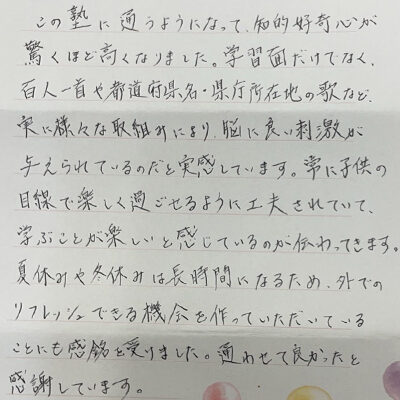 この塾に通うようになって、知的好奇心が
驚くほど高くなりました。学習面だけでなく、
百人一首や都道府県名・県庁所在地の歌など、
実に様々な取組みにより、脳に良い刺激が
与えられているのだと実感しています。常に子供の
目線で楽しく過ごせるように工夫されていて、
学ぶことが楽しいと感じているのが伝わってきます。
夏休みや冬休みは長時間になるため、外での
リフレッシュできる機会を作っていただいている
ことにも感銘を受けました。通わせて良かったと
感謝しています。